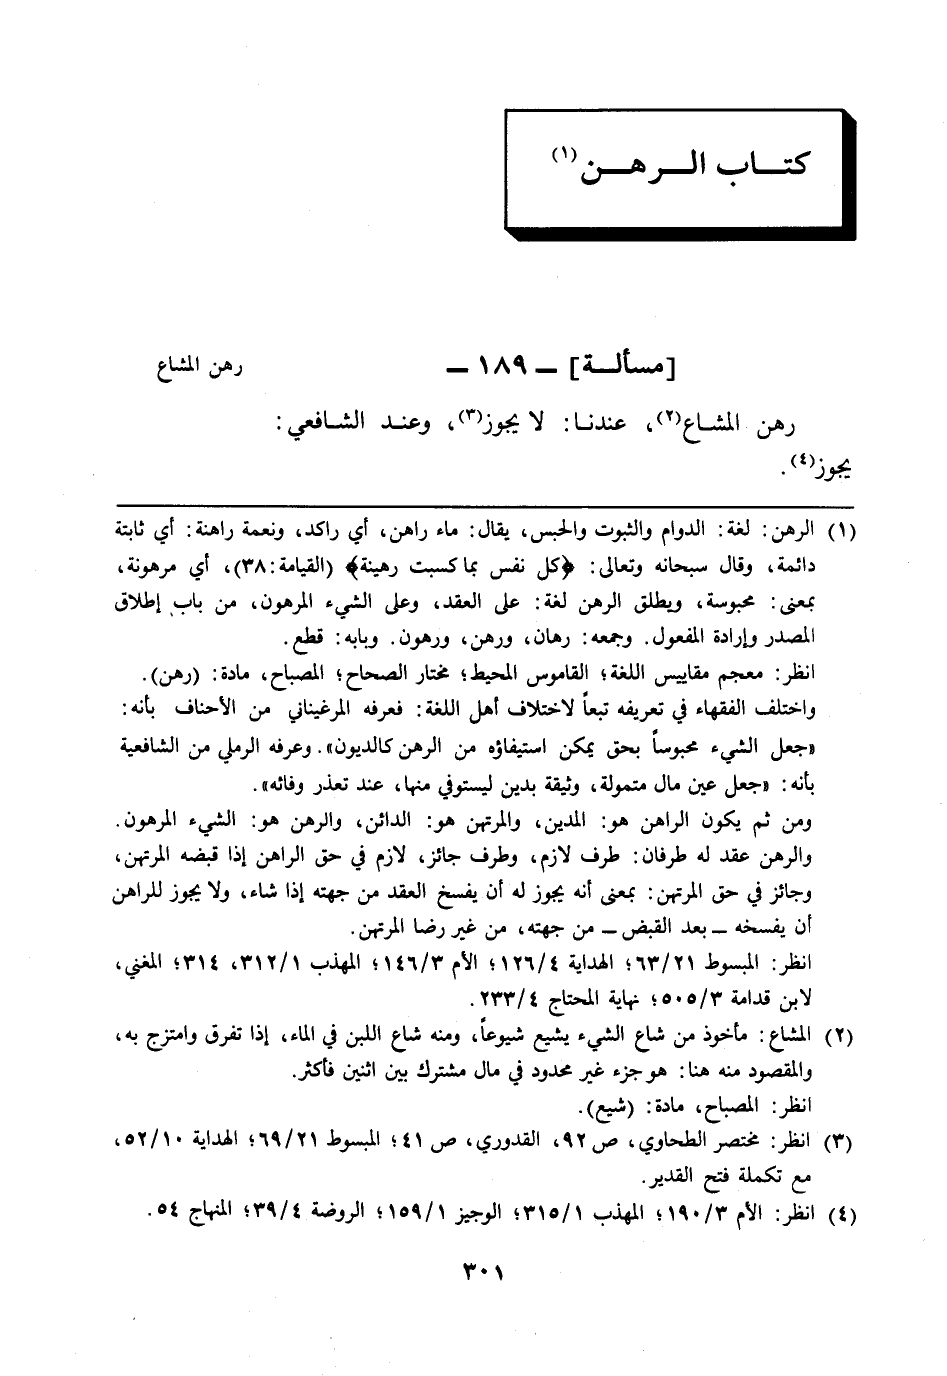 كتـــاب الـــرهـــن(١)
[مسألــة] ــ ١٨٩ ــ
رهن المشاع
رهن المشـاع(٢)، عندنـا: لا يجوز(٣)، وعنـد الشـافعي:
يجوز(٤).
(١) الرهن: لغة: الدوام والثبوت والحبس، يقال: ماء راهن، أي راكد، ونعمة راهنة: أي ثابتة
دائمة، وقال سبحانه وتعالى: ﴿كل نفس بما كسبت رهينة﴾ (القيامة:٣٨)، أي مرهونة،
بمعنى: محبوسة، ويطلق الرهن لغة: على العقد، وعلى الشيء المرهون، من باب إطلاق
المصدر وإرادة المفعول. وجمعه: رهان، ورهن، ورهون. وبابه: قطع.
انظر: معجم مقاييس اللغة؛ القاموس المحيط؛ مختار الصحاح؛ المصباح، مادة: (رهن).
واختلف الفقهاء في تعريفه تبعاً لاختلاف أهل اللغة: فعرفه المرغيناني من الأحناف بأنه:
«جعل الشيء محبوساً بحق يمكن استيفاؤه من الرهن كالديون». وعرفه الرملي من الشافعية
بأنه: «جعل عين مال متمولة، وثيقة بدين ليستوفي منها، عند تعذر وفائه».
ومن ثم يكون الراهن هو: المدين، والمرتهن هو: الدائن، والرهن هو: الشيء المرهون.
والرهن عقد له طرفان: طرف لازم، وطرف جائز، لازم في حق الراهن إذا قبضه المرتهن،
وجائز في حق المرتهن: بمعنى أنه يجوز له أن يفسخ العقد من جهته إذا شاء، ولا يجوز للراهن
أن يفسخه ــ بعد القبض ــ من جهته، من غير رضا المرتهن.
انظر: المبسوط ٦٣/٢١؛ الهداية ١٢٦/٤؛ الأم ١٤٦/٣؛ المهذب ٣١٢/١، ٣١٤؛ المغني،
لابن قدامة ٥٠٥/٣؛ نهاية المحتاج ٢٣٣/٤.
(٢) المشاع: مأخوذ من شاع الشيء يشيع شيوعاً، ومنه شاع اللبن في الماء، إذا تفرق وامتزج به،
والمقصود منه هنا: هو جزء غير محدود في مال مشترك بين اثنين فأكثر.
انظر: المصباح، مادة: (شيع).
(٣) انظر: مختصر الطحاوي، ص ٩٢، القدوري، ص ٤١؛ المبسوط ٦٩/٢١؛ الهداية ٥٢/١٠،
مع تكملة فتح القدير.
(٤) انظر: الأم ١٩٠/٣؛ المهذب ٣١٥/١؛ الوجيز ١٥٩/١؛ الروضة ٣٩/٤؛ المنهاج ٥٤.
٣٠١